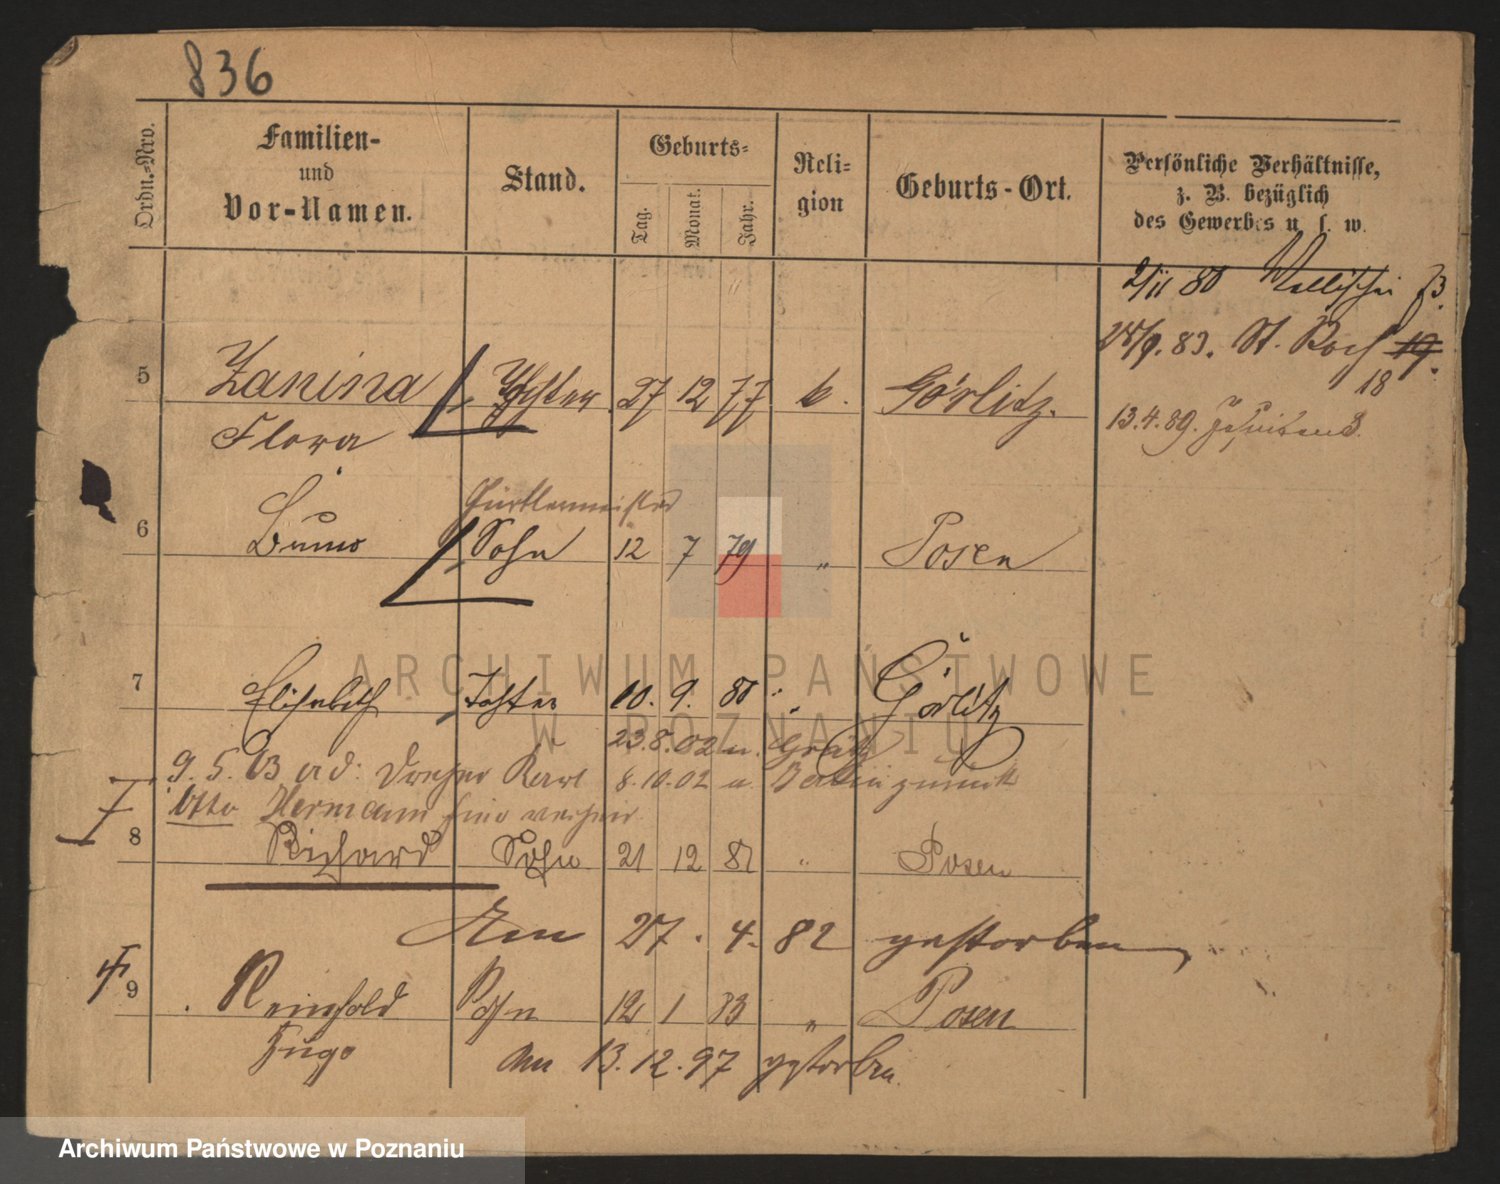 836
Ordn.-Nro.
Familien-
und
Vor-Namen.
Stand.
Geburts-
Tag.
Monat.
Jahr.
Reli-
gion
Geburts-Ort.
Persönliche Verhältnisse,
z. B. bezüglich
des Gewerbes u. s. w.
2/11 80 Wallischei 73.
28/9. 83. St. Roch 19.
18
5 Zanina Tochter 27 12 77 k. Görlitz.
13.4.89. Jesuitens 3.
Flora
Gürtlermeister
6 Bruno Sohn 12 7 79 " Posen
7 Elisabeth Tochter 10. 9. 80 " Görlitz
23.8.02 n. Graetz
9. 5. 03 Karl 8.10.02 v. Berlin zurück
Otto Hermann
8 Richard Sohn 21 12 81 " Posen
Am 27. 4. 82 gestorben
9 Reinhold Sohn 12 1 83 " Posen
Hugo
Am 13.12.97 gestorben.
ARCHIWUM PAŃSTWOWE
W POZNANIU
Archiwum Państwowe w Poznaniu